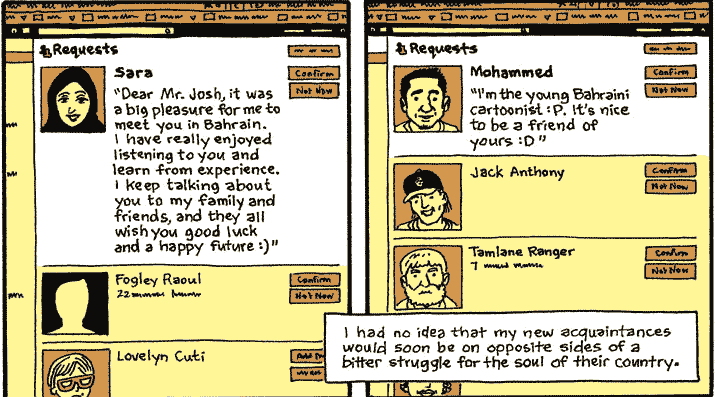 Requests
Sara
Confirm
Not Now
"Dear Mr. Josh, it was
a big pleasure for me to
meet you in Bahrain.
I have really enjoyed
listening to you and
learn from experience.
I keep talking about
you to my family and
friends, and they all
wish you good luck
and a happy future :)"
Fogley Raoul
22
Confirm
Not Now
Lovelyn Cuti
Requests
Mohammed
Confirm
Not Now
"I'm the young Bahraini
cartoonist :P. It's nice
to be a friend of
yours :D"
Jack Anthony
Confirm
Not Now
Tamlane Ranger
7
Confirm
Not Now
I had no idea that my new acquaintances
would soon be on opposite sides of a
bitter struggle for the soul of their country.